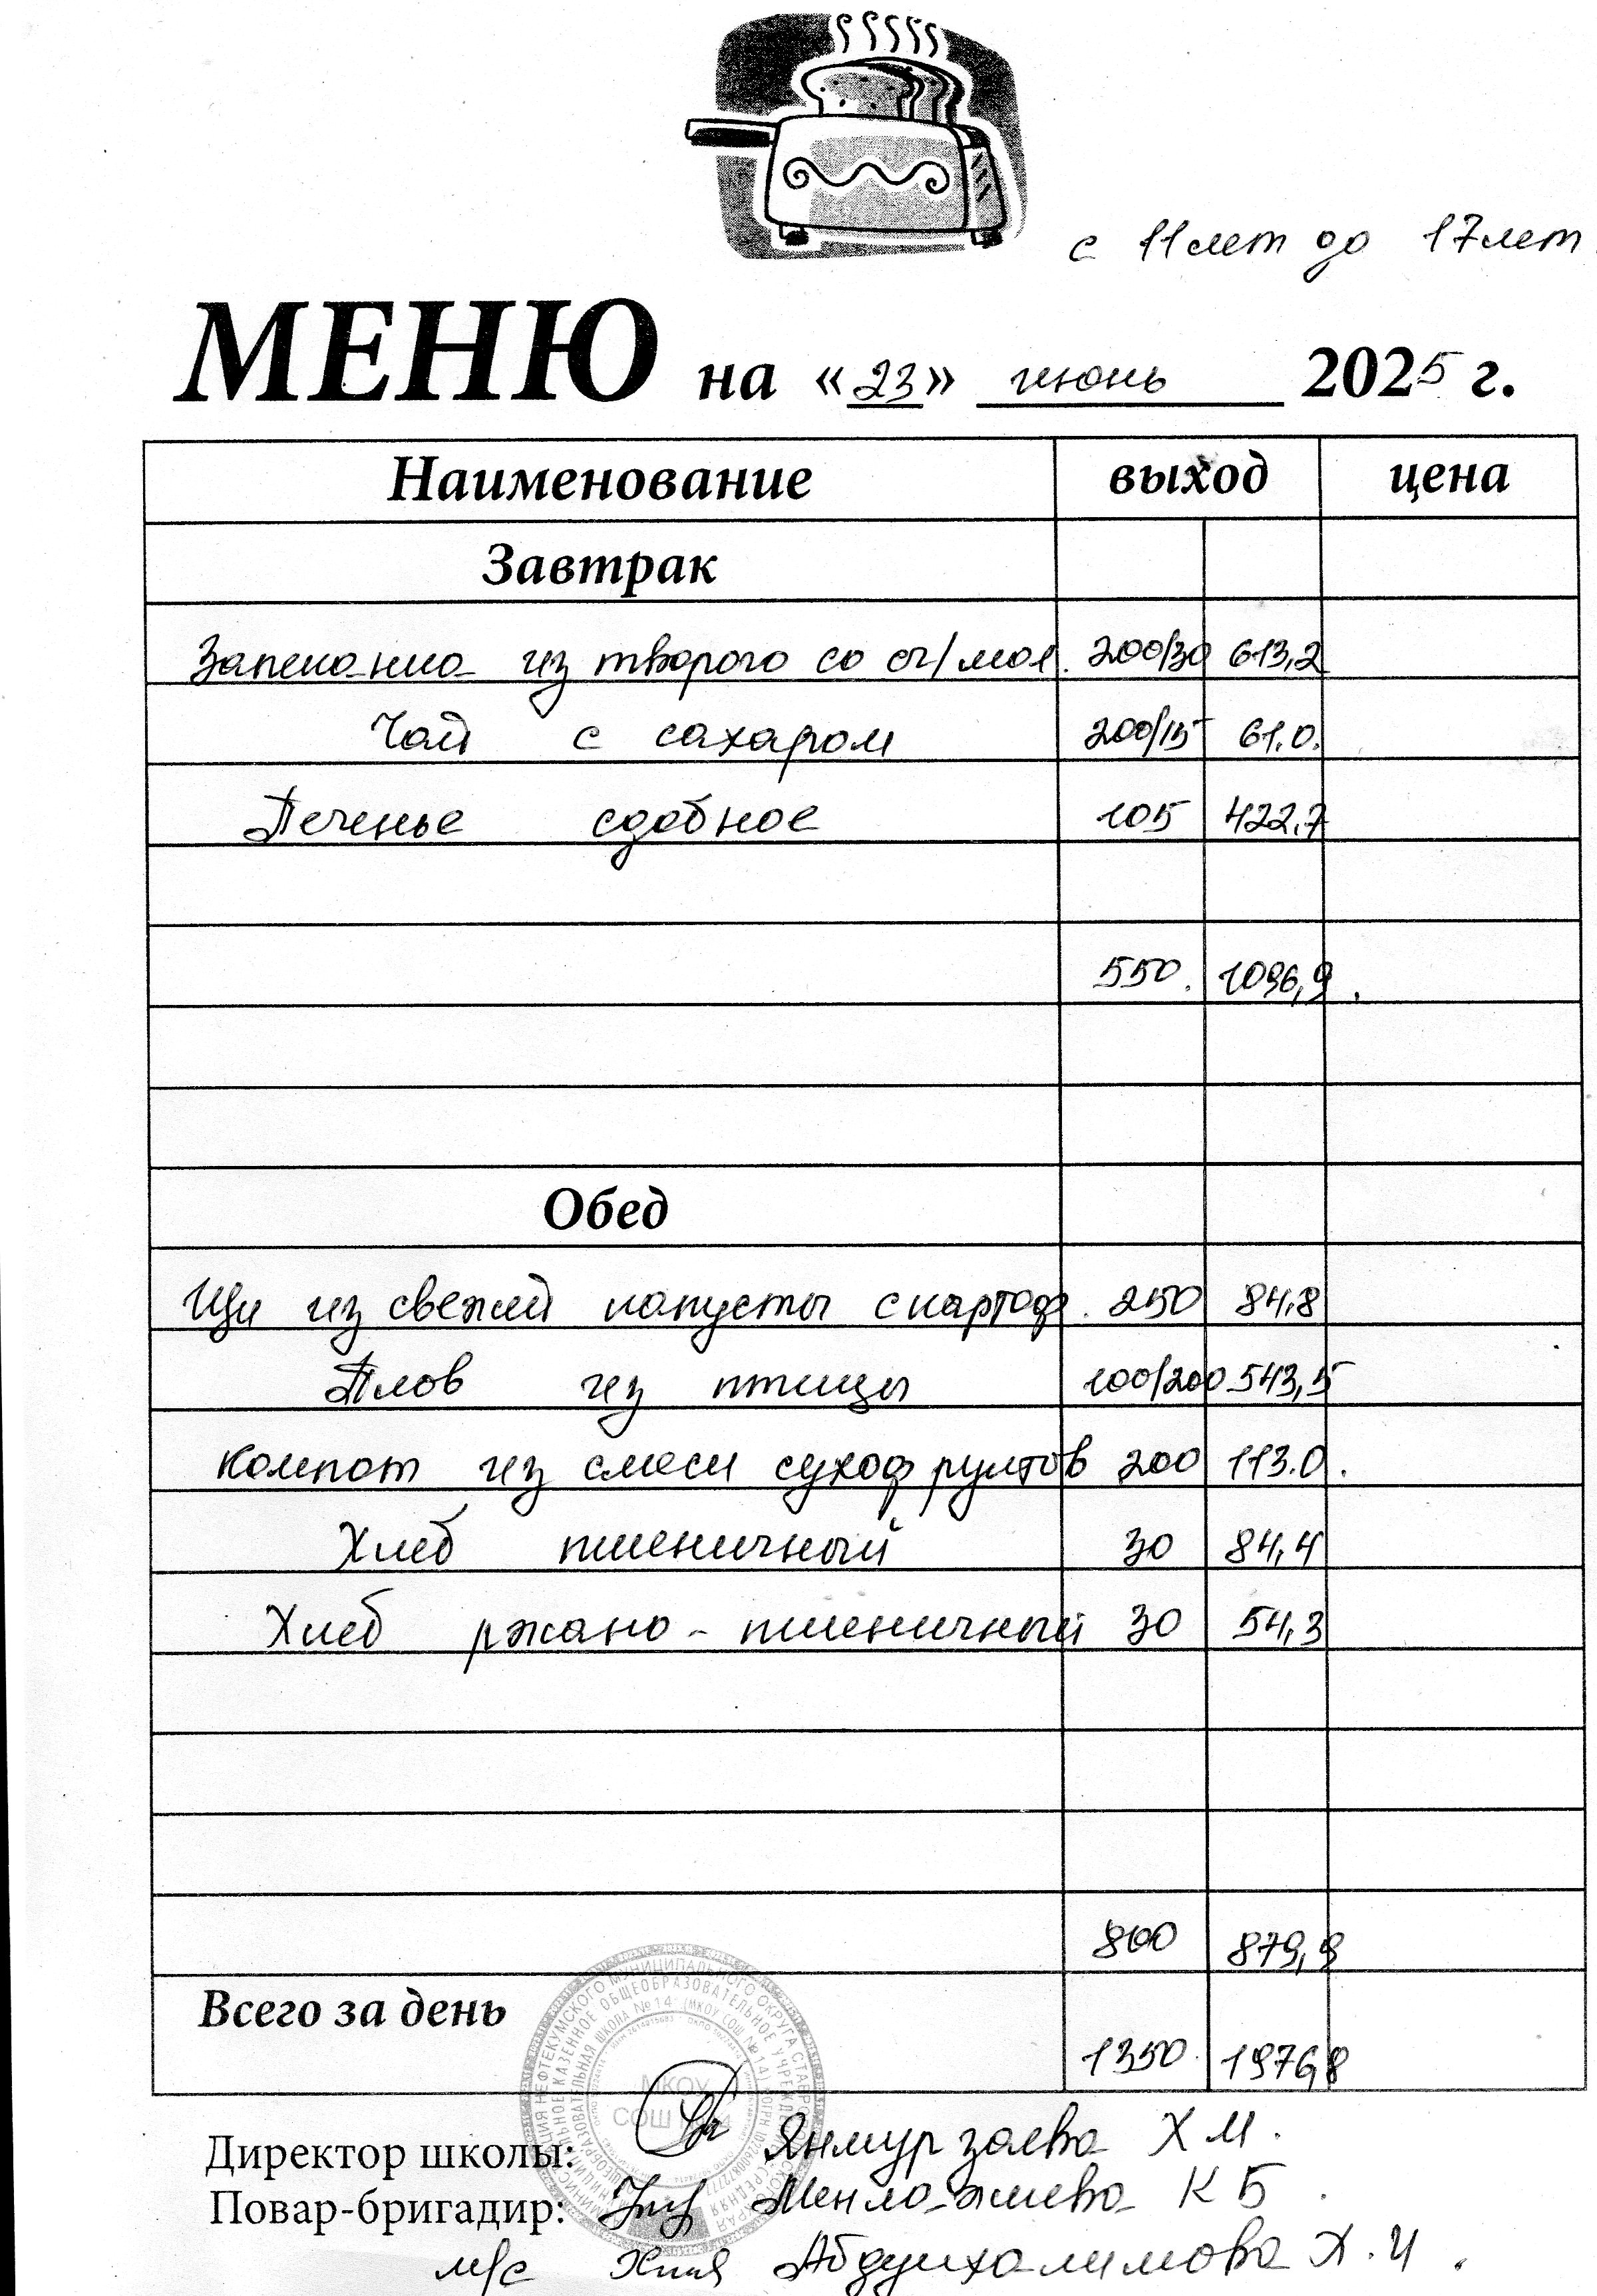 с 11 лет до 17 лет
МЕНЮ на «23» июнь 2025 г.
Наименование выход цена
Завтрак
Запеканка из творога со сг/мол. 200/30 613,2
Чай с сахаром 200/15 61.0.
Печенье сдобное 105 422,7
550. 1096,9.
Обед
Щи из свежей капусты с картоф. 250 84,8
Плов из птицы 100/200 543,5
Компот из смеси сухофруктов 200 113.0.
Хлеб пшеничный 30 84,4
Хлеб ржано-пшеничный 30 54,3
800 879,9
Всего за день
1350. 1976,8
МКОУ
СОШ
Директор школы: Янмурзаева Х И.
Повар-бригадир: К Б.
м/с Абдулхалимова Х.И.